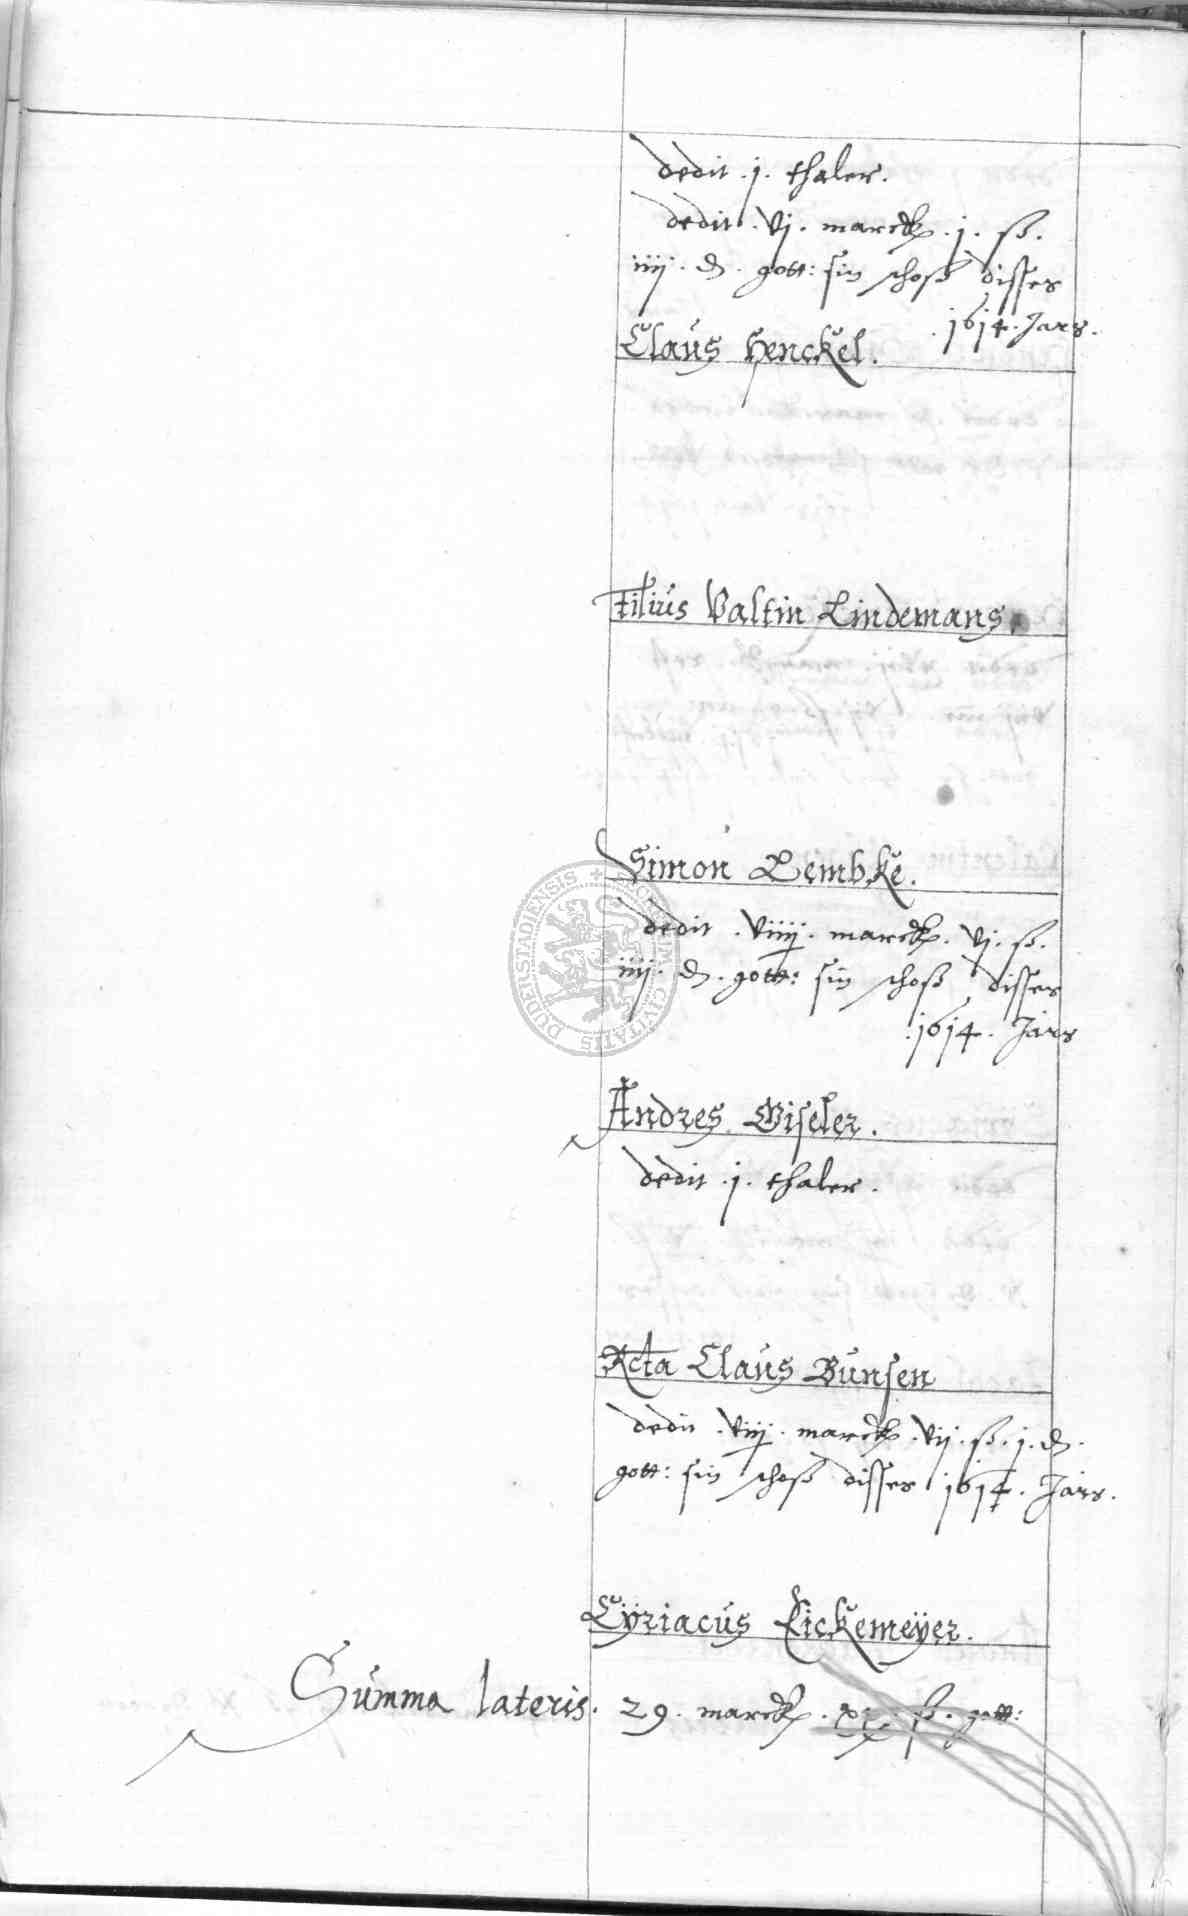 dedit . j . thaler .
dedit . vj . marck . j . ß .
iiij . d . gott : sin schoß disses
. 1614 . Jars .
Claus Henckel .
Filius Valtin Lindemans .
Simon Lembke .
dedit . viiij . marck . vj . ß .
iiij . d . gott : sin schoß disses
. 1614 . Jars
Andres Giseler .
dedit . j . thaler .
Rcta Claus Bunsen
dedit . viiij . marck . vij . ß . j . d .
gott : sin schoß disses 1614 . Jars .
Cÿriacus Eickemeÿer .
Summa lateris . 29 . marck . ß . gott :
SECRETUM CIVITATIS DUDERSTADIENSIS +